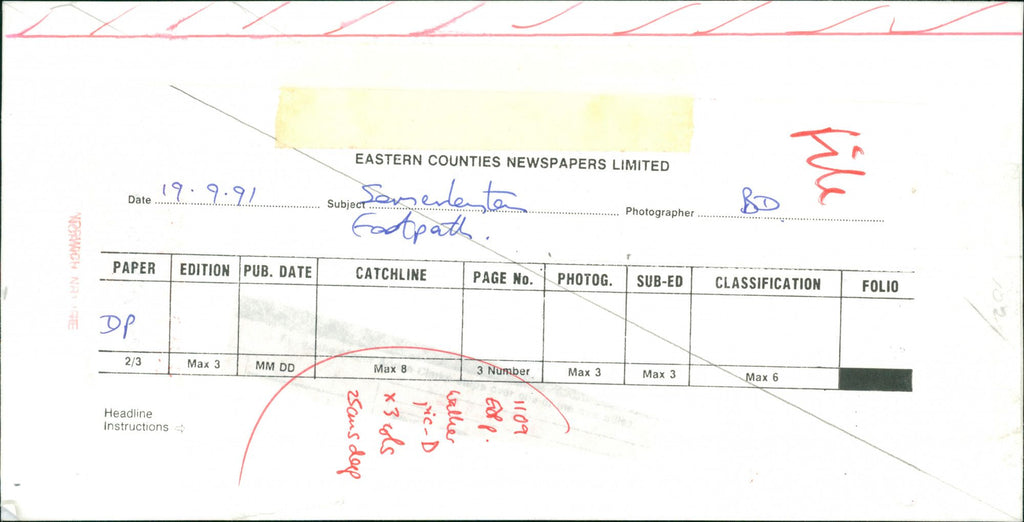 EASTERN COUNTIES NEWSPAPERS LIMITED
Date 19.9.91 Subject Somerleyton Photographer BD
Footpath.
file
PAPER EDITION PUB. DATE CATCHLINE PAGE No. PHOTOG. SUB-ED CLASSIFICATION FOLIO
DP
2/3 Max 3 MM DD Max 8 3 Number Max 3 Max 3 Max 6
Headline
Instructions
1109
EDP.
walker
pic-D
x 3 cols
25cms deep